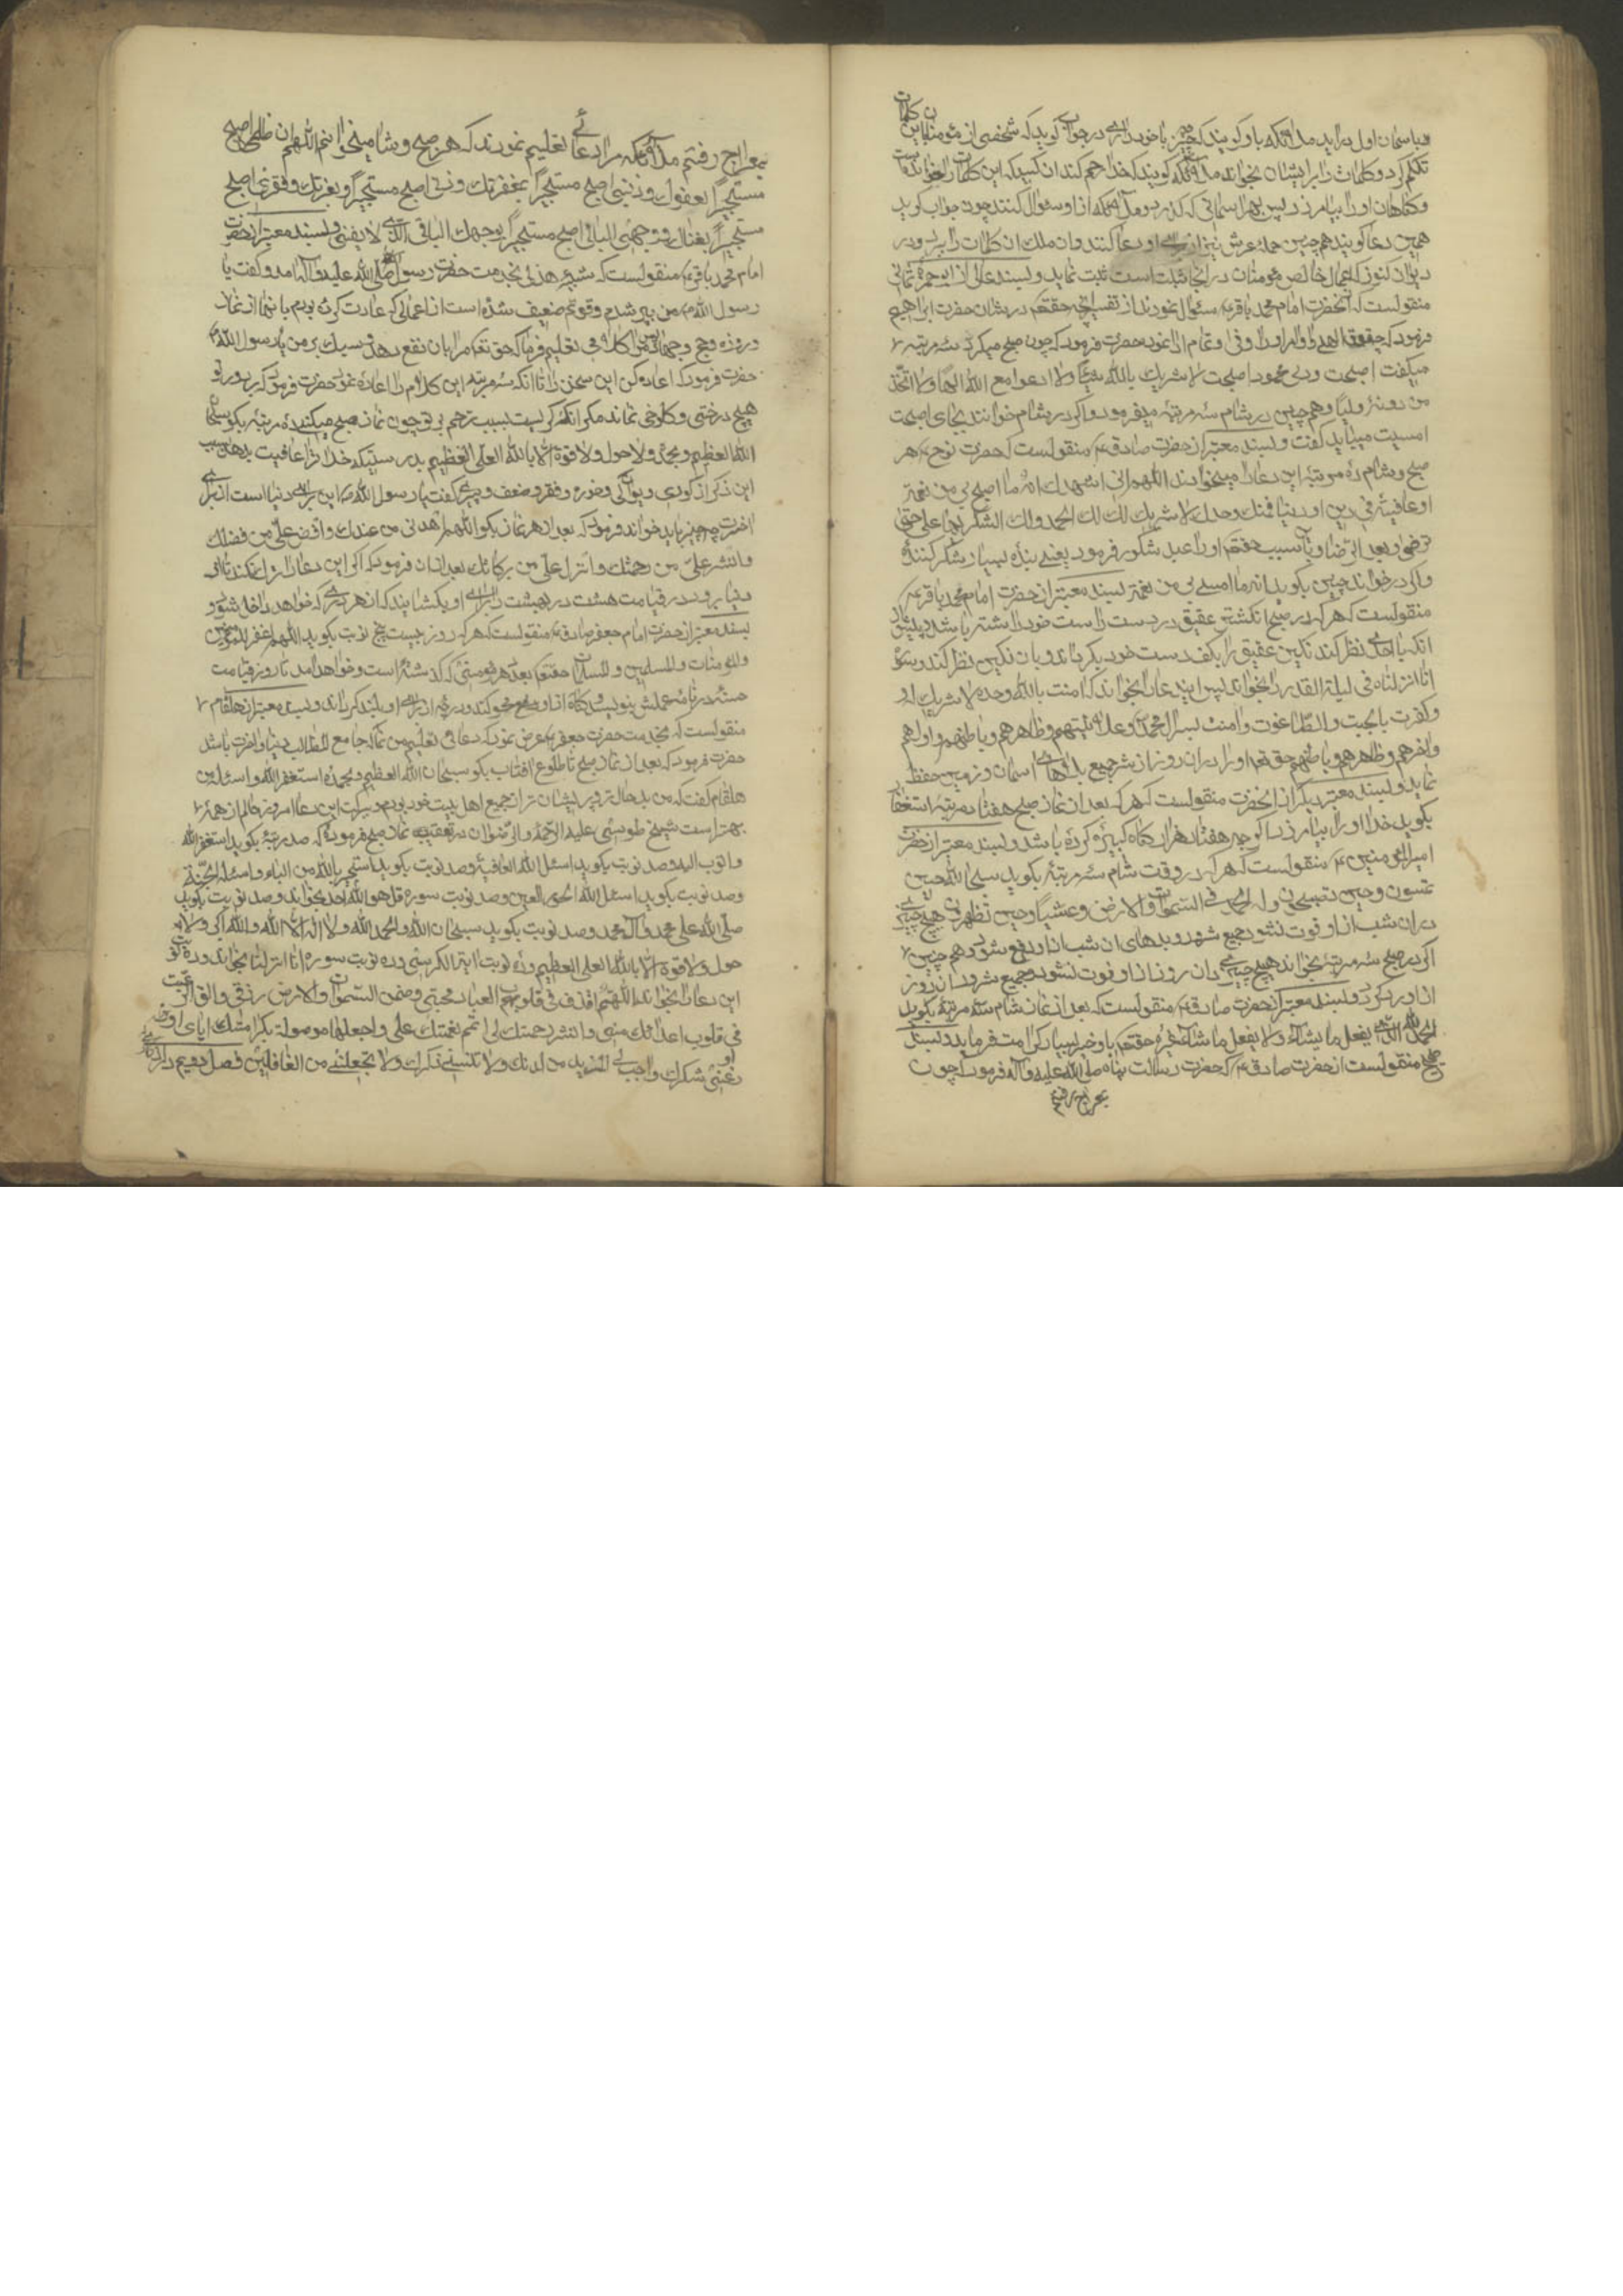 و باسمان اول برآید ملائکه باو کویند که چه چیز با خود داری در جواب کوید که شخصی از مؤمنان باین کلمات
تکلم کرد و کلمات را بر ایشان بخواند ملائکه کویند که خدا رحم کند آن کسیرا که این کلمات را خوانده است
و کناهان او را بیامرزد پس بهر آسمانی که کذرد و ملائکه از او سؤال کنند چون جواب کوید
همین دعا کویند همچنین حمله عرش نیز از برای او دعا کنند و آن ملک آن کلمات را ببرد و در
دیوان کنوز که اعمال خالص مؤمنان در آنجا ثبت است ثبت نماید و بسند عالی از ابو حمزه ثمالی
منقولست که آنحضرت امام محمد باقر ع سئوال نمودند از تفسیر آنچه حقتعالی در شان حضرت ابراهیم
فرمود که و ابراهیم الذی وفی حضرت فرمود که چون صبح میکرد سه مرتبه
میکفت اصبحت و ربی محمود اصبحت لا اشرک بالله شیئا و لا ادعوا مع الله الها و لا اتخذ
من دونه ولیا و همچنین در شام سه مرتبه میفرمود و اکر در شام خوانند بجای اصبحت
امسیت میباید کفت و بسند معتبر از حضرت صادق ع منقولست که حضرت نوح ع هر
صبح و شام ده مرتبه این دعا را میخواندند اللهم انی اشهدک انه ما اصبح بی من نعمة
او عافیة فی دین او دنیا فمنک وحدک لا شریک لک لک الحمد و لک الشکر بها علی حتی
ترضی و بعد الرضا و بآن سبب حقتعالی او را عبد شکور فرمود یعنی بنده بسیار شکر کننده
و اکر در خواند چنین بکوید انه ما امسی بی من نعمة بسند معتبر از حضرت امام محمد باقر ع
منقولست که هر که در صبح انکشتر عقیق در دست راست خود داشته باشد و پیش از
آنکه باحدی نظر کند نکین عقیق را بکف دست خود بکرداند و بآن نکین نظر کند و سوره
انا انزلناه فی لیلة القدر را بخواند پس این دعا را بخواند که امنت بالله وحده لا شریک له
و کفرت بالجبت و الطاغوت و امنت بسر ال محمد و علانیتهم و ظاهرهم و باطنهم و اولهم
و اخرهم و ظاهرهم و باطنهم حق تعالی او را در آن روز از شر جمیع بلاهای آسمان و زمین حفظ
نماید و بسند معتبر دیکر از آنحضرت منقولست که هر که بعد از نماز صبح هفتاد مرتبه استغفار
بکوید خدا او را بیامرزد اکرچه هفتاد هزار کناه کبیره کرده باشد و بسند معتبر از حضرت
امیر المؤمنین ع منقولست که هر که در وقت شام سه مرتبه بکوید سبحان الله حین
تمسون و حین تصبحون و له الحمد فی السموات و الارض و عشیا و حین تظهرون هیچ چیزی
در آن شب از او فوت نشود جمیع شر و بدهای آن شب از او دفع شود و همچنین
اکر در صبح سه مرتبه بخواند هیچ چیزی در آن روز از او فوت نشود و جمیع شرور آن روز
از او برکردد و بسند معتبر از حضرت صادق ع منقولست که بعد از نماز شام سه مرتبه بکوید
الحمد لله الذی یفعل ما یشاء و لا یفعل ما شاء غیره حقتعالی باو خیر بسیار کرامت فرماید و بسند
صحیح منقولست از حضرت صادق ع که حضرت رسالت پناه صلی الله علیه و آله فرمود که چون
بمعراج رفتم
بمعراج رفتم ملائکه مرا دعائی تعلیم نمودند که هر صبح و شام میخوانم اللهم ان ظلمی اصبح
مستجیرا بعفوک و ذنبی اصبح مستجیرا بمغفرتک و ذلی اصبح مستجیرا بعزتک و فقری اصبح
مستجیرا بغناک و وجهی البالی اصبح مستجیرا بوجهک الباقی الذی لا یفنی و بسند معتبر از حضرت
امام محمد باقر ع منقولست که شیبه هذلی بخدمت حضرت رسول صلی الله علیه و آله آمد و کفت یا
رسول الله من پیر شدم و قوتم ضعیف شده است از اعمالی که عادت کرده بودم بآنها از نماز
و روزه و حج و جهاد پس کلامی تعلیم فرما که حق تعالی مرا بآن نفع دهد و سبک بر من یا رسول الله
حضرت فرمود که اعاده کن این سخن را تا آنکه سه مرتبه این کلام را اعاده نمود حضرت فرمود که بر دور تو
هیچ درختی و کلوخی نماند مکر آنکه کریست بسبب ترحم بر تو چون نماز صبح میکنی ده مرتبه بکو سبحان
الله العظیم و بحمده و لا حول و لا قوة الا بالله العلی العظیم بدرستیکه خدا ترا عافیت بدهد بسبب
این ذکر از کوری و دیوانکی و خوره و فقر و ضعف و پیری کفت یا رسول الله این برای دنیا است از برای
آخرت چه چیز باید خواند فرمود که بعد از هر نماز بکو اللهم اهدنی من عندک و افض علی من فضلک
و انشر علی من رحمتک و انزل علی من برکاتک بعد از آن فرمود که اکر این دعا را ترک نکند تا از
دنیا برود در قیامت هشت در بهشت را برای او بکشایند که از هر دری که خواهد داخل شود و
بسند معتبر از حضرت امام جعفر صادق ع منقولست که هر که روز بیست پنج نوبت بکوید اللهم اغفر للمؤمنین
و المؤمنات و المسلمین و المسلمات حقتعالی بعدد هر مؤمنی که کذشته است و خواهد آمد تا روز قیامت
حسنه در نامه عملش بنویسد و کناه از او محو کند و درجه از برای او بلند کرداند و بسند معتبر از هلقام
منقولست که بخدمت حضرت جعفر ع عرض نمود که دعائی تعلیم من نما که جامع مطالب دنیا و آخرت باشد
حضرت فرمود که بعد از نماز صبح تا طلوع آفتاب بکو سبحان الله العظیم و بحمده استغفر الله و اسئله من
هلقام کفت که من بد حال تر و پریشان تر از جمیع اهل بیت خود بودم و ببرکت این دعا امروز حالم از همه
بهتر است شیخ طوسی علیه الرحمة و الرضوان در تعقیب نماز صبح فرموده که صد مرتبه بکوید استغفر الله
و اتوب الیه و صد نوبت بکوید اسئل الله العافیة و صد نوبت بکوید استجیر بالله من النار و اسئله الجنة
و صد نوبت بکوید اسئل الله الحور العین و صد نوبت سوره قل هو الله احد بخواند و صد نوبت بکوید
صلی الله علی محمد و آل محمد و صد نوبت بکوید سبحان الله و الحمد لله و لا اله الا الله و الله اکبر و لا
حول و لا قوة الا بالله العلی العظیم و ده نوبت آیة الکرسی و ده نوبت سوره انا انزلنا بخواند و ده نوبت
این دعا را بخواند اللهم اقذف فی قلوب العباد محبتی و ضمن السموات و الارض رزقی و الق الرعب
فی قلوب اعدائک منی و انشر رحمتک لی و اتمم نعمتک علی و اجعلها موصولة بکرامتک ایای و اوزعنی
شکرک و اوجب لی المزید من لدنک و لا تنسنی ذکرک و لا تجعلنی من الغافلین فصل دویم در